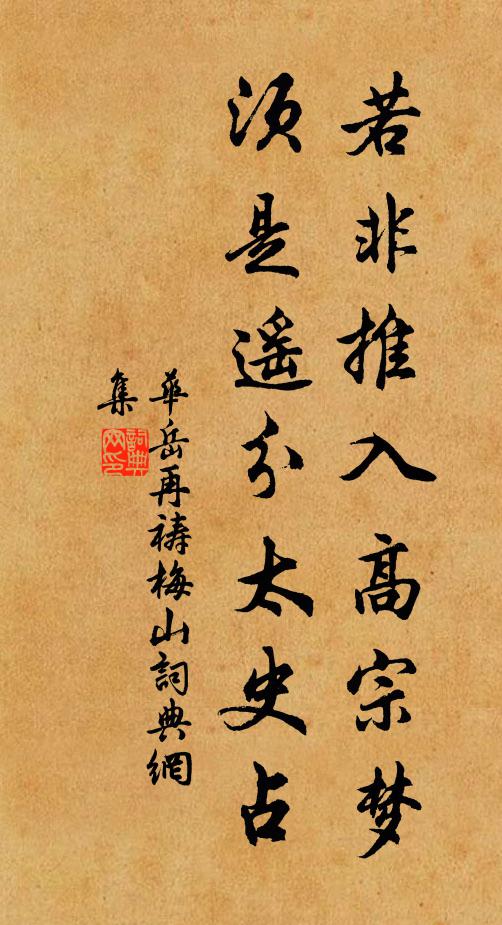 若非推入高宗梦
须是遥分太史占
華岳再禱梅山詞典網
集
詞典网印